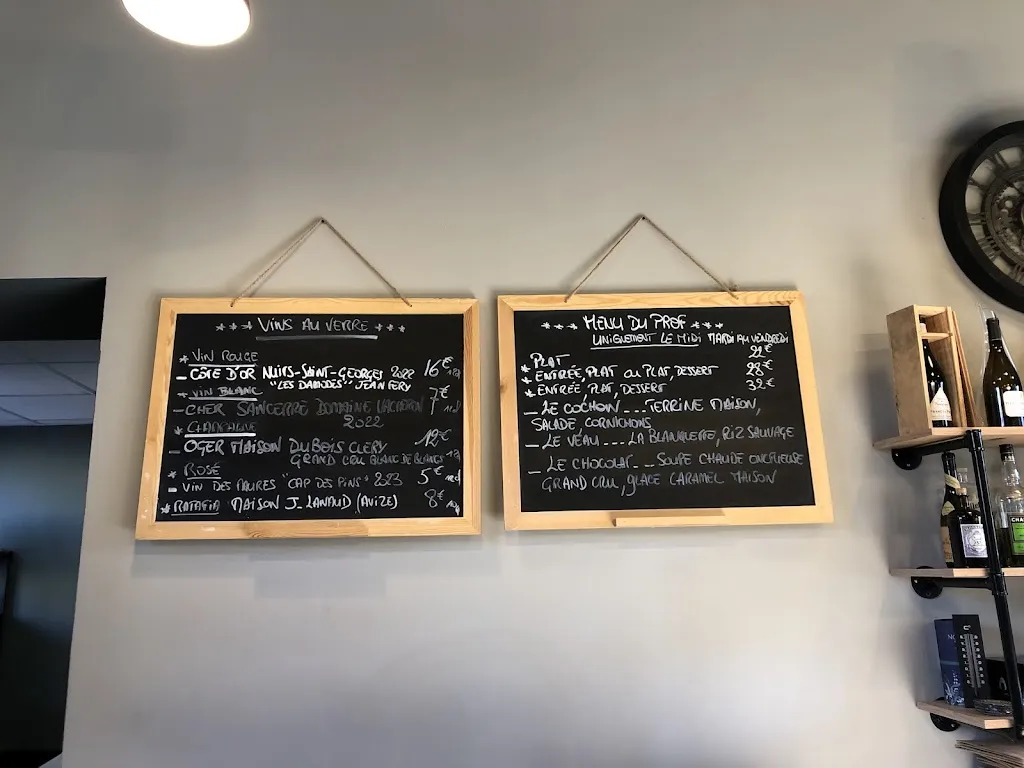 *** VINS AU VERRE ***
* VIN ROUGE
- CÔTE D'OR NUITS-SAINT-GEORGES 2022 16€
"LES DAMODES" JEAN FERY
* VIN BLANC 7€
- CHER SANCERRE DOMAINE VACHERON
2022
* CHAMPAGNE
- OGER MAISON DUBOIS CLERY
GRAND CRU BLANC DE BLANCS
* ROSÉ
- VIN DES MAURES "CAP DES PINS" 2023 5€
* RATAFIA MAISON J. LANAUD (AVIZE) 8€
*** MENU DU PROF ***
UNIQUEMENT LE MIDI MARDI AU VENDREDI
* PLAT
* ENTRÉE, PLAT OU PLAT, DESSERT 28€
* ENTRÉE, PLAT, DESSERT 32€
- LE COCHON --- TERRINE MAISON,
SALADE, CORNICHONS
- LE VEAU --- LA BLANQUETTE, RIZ SAUVAGE
- LE CHOCOLAT --- SOUPE CHAUDE ONCTUEUSE
GRAND CRU, GLACE CARAMEL MAISON